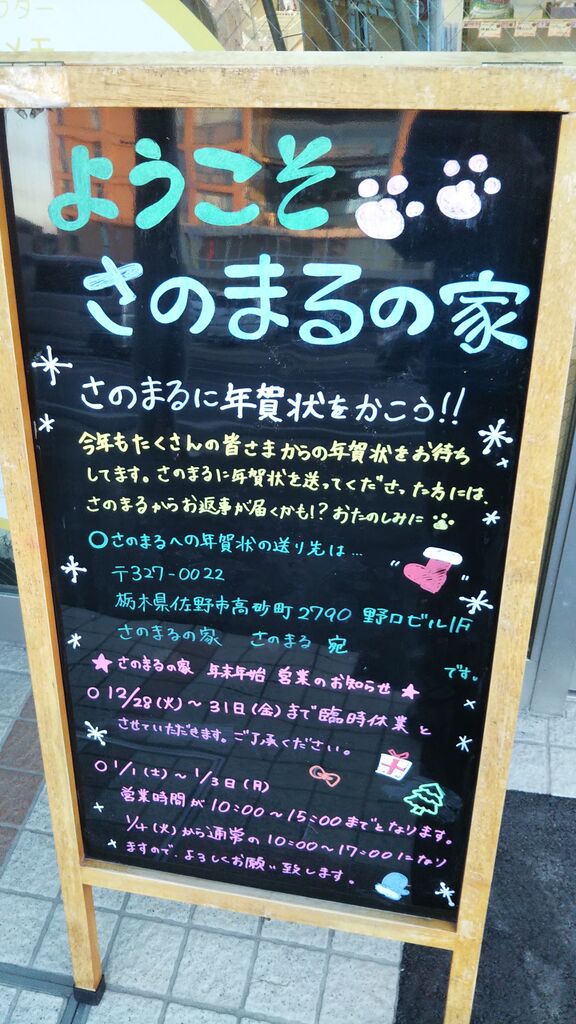 メモ
ようこそ
さのまるの家
さのまるに年賀状をかこう!!
今年もたくさんの皆さまからの年賀状をお待ち
してます。さのまるに年賀状を送ってくださった方には、
さのまるからお返事が届くかも!?おたのしみに
○さのまるへの年賀状の送り先は…
〒327-0022
栃木県佐野市高砂町2790 野口ビル1F
さのまるの家 さのまる 宛
です。
★さのまるの家 年末年始 営業のお知らせ★
○12/28(火)～31日(金)まで臨時休業と
させていただきます。ご了承ください。
○1/1(土)～1/3日(月)
営業時間が10:00～15:00までとなります。
1/4(火)から通常の10:00～17:00になり
ますので、よろしくお願い致します。